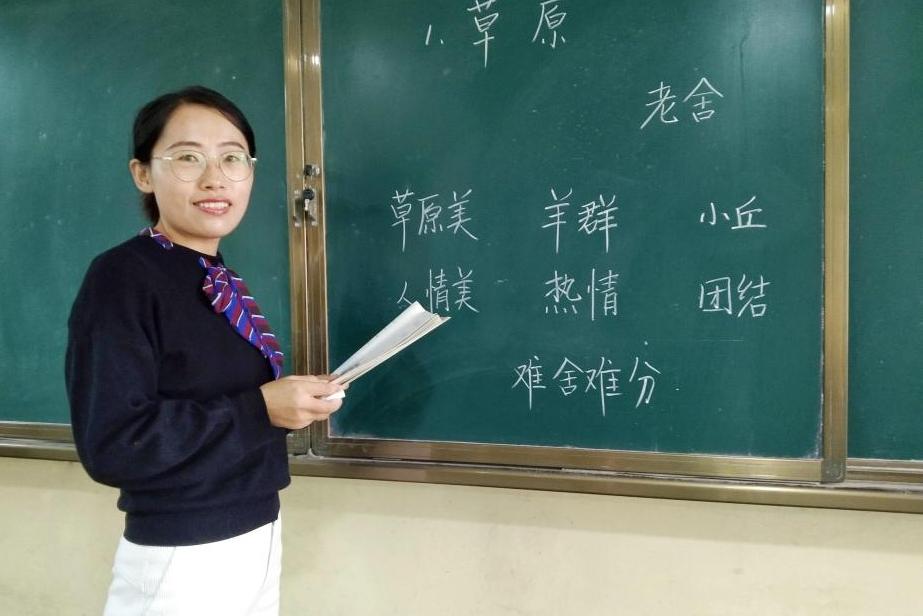 1. 草原
老舍
草原美 羊群 小丘
人情美 热情 团结
难舍难分